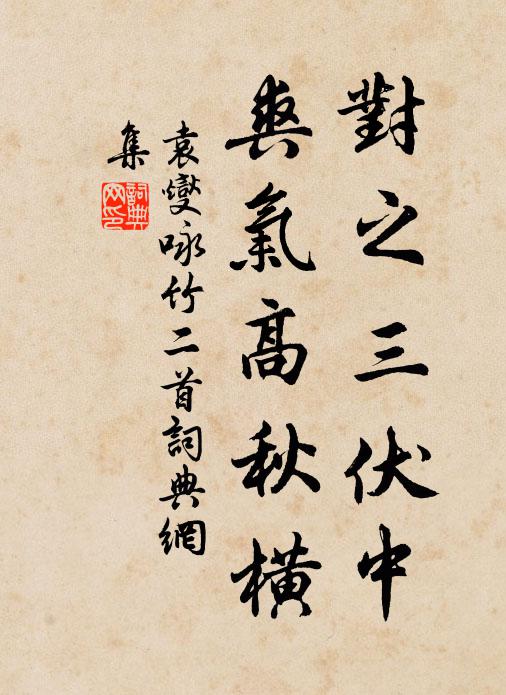 對之三伏中
爽氣高秋橫
袁燮咏竹二首詞典網
集
詞典
网印